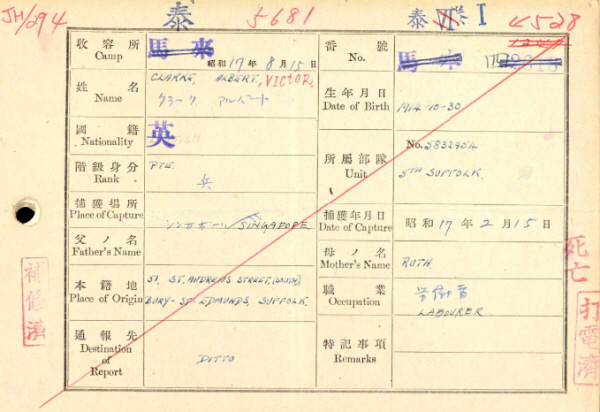 JH/294
泰
5681
泰
I
4528
收容所
Camp
馬來
昭和17年8月15日
番號
No.
馬來
姓名
Name
CLARKE, ALBERT, VICTOR,
クラーク アルバート
生年月日
Date of Birth
1914-10-30
國籍
Nationality
英
所屬部隊
Unit
No. 5832954
5TH SUFFOLK.
階級身分
Rank
PTE.
兵
捕獲場所
Place of Capture
シンガポール SINGAPORE
捕獲年月日
Date of Capture
昭和17年2月15日
父ノ名
Father's Name
母ノ名
Mother's Name
RUTH
本籍地
Place of Origin
51, ST. ANDREWS STREET, (SOUTH),
BURY-ST. EDMUNDS, SUFFOLK.
職業
Occupation
労働者
LABOURER
通報先
Destination
of
Report
DITTO
特記事項
Remarks
補修濟
死亡
打電濟